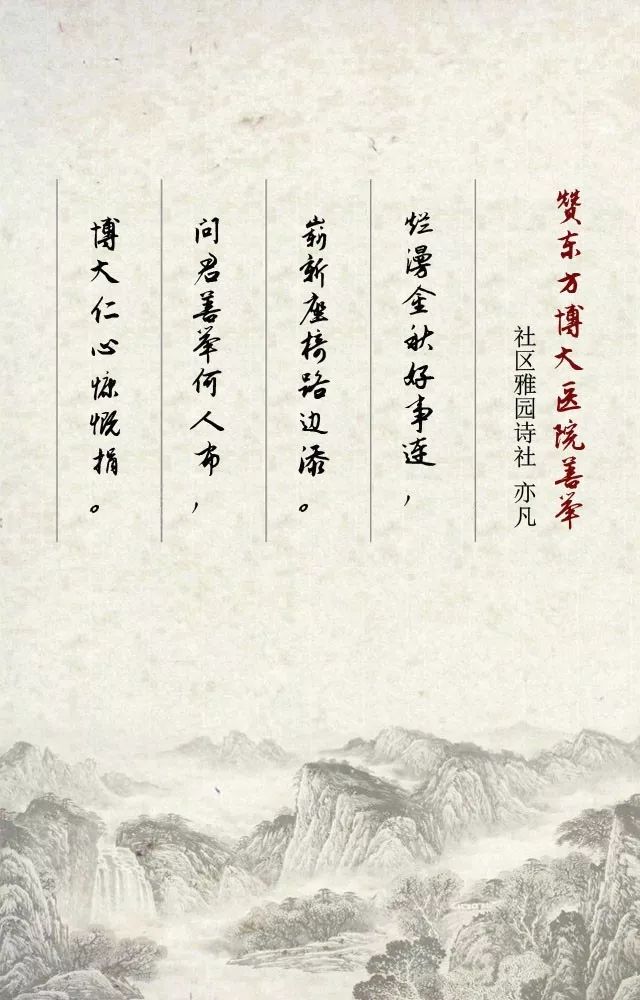 赞东方博大医院善举
社区雅园诗社 亦凡
烂漫金秋好事连，
崭新座椅路边添。
问君善举何人布，
博大仁心慷慨捐。